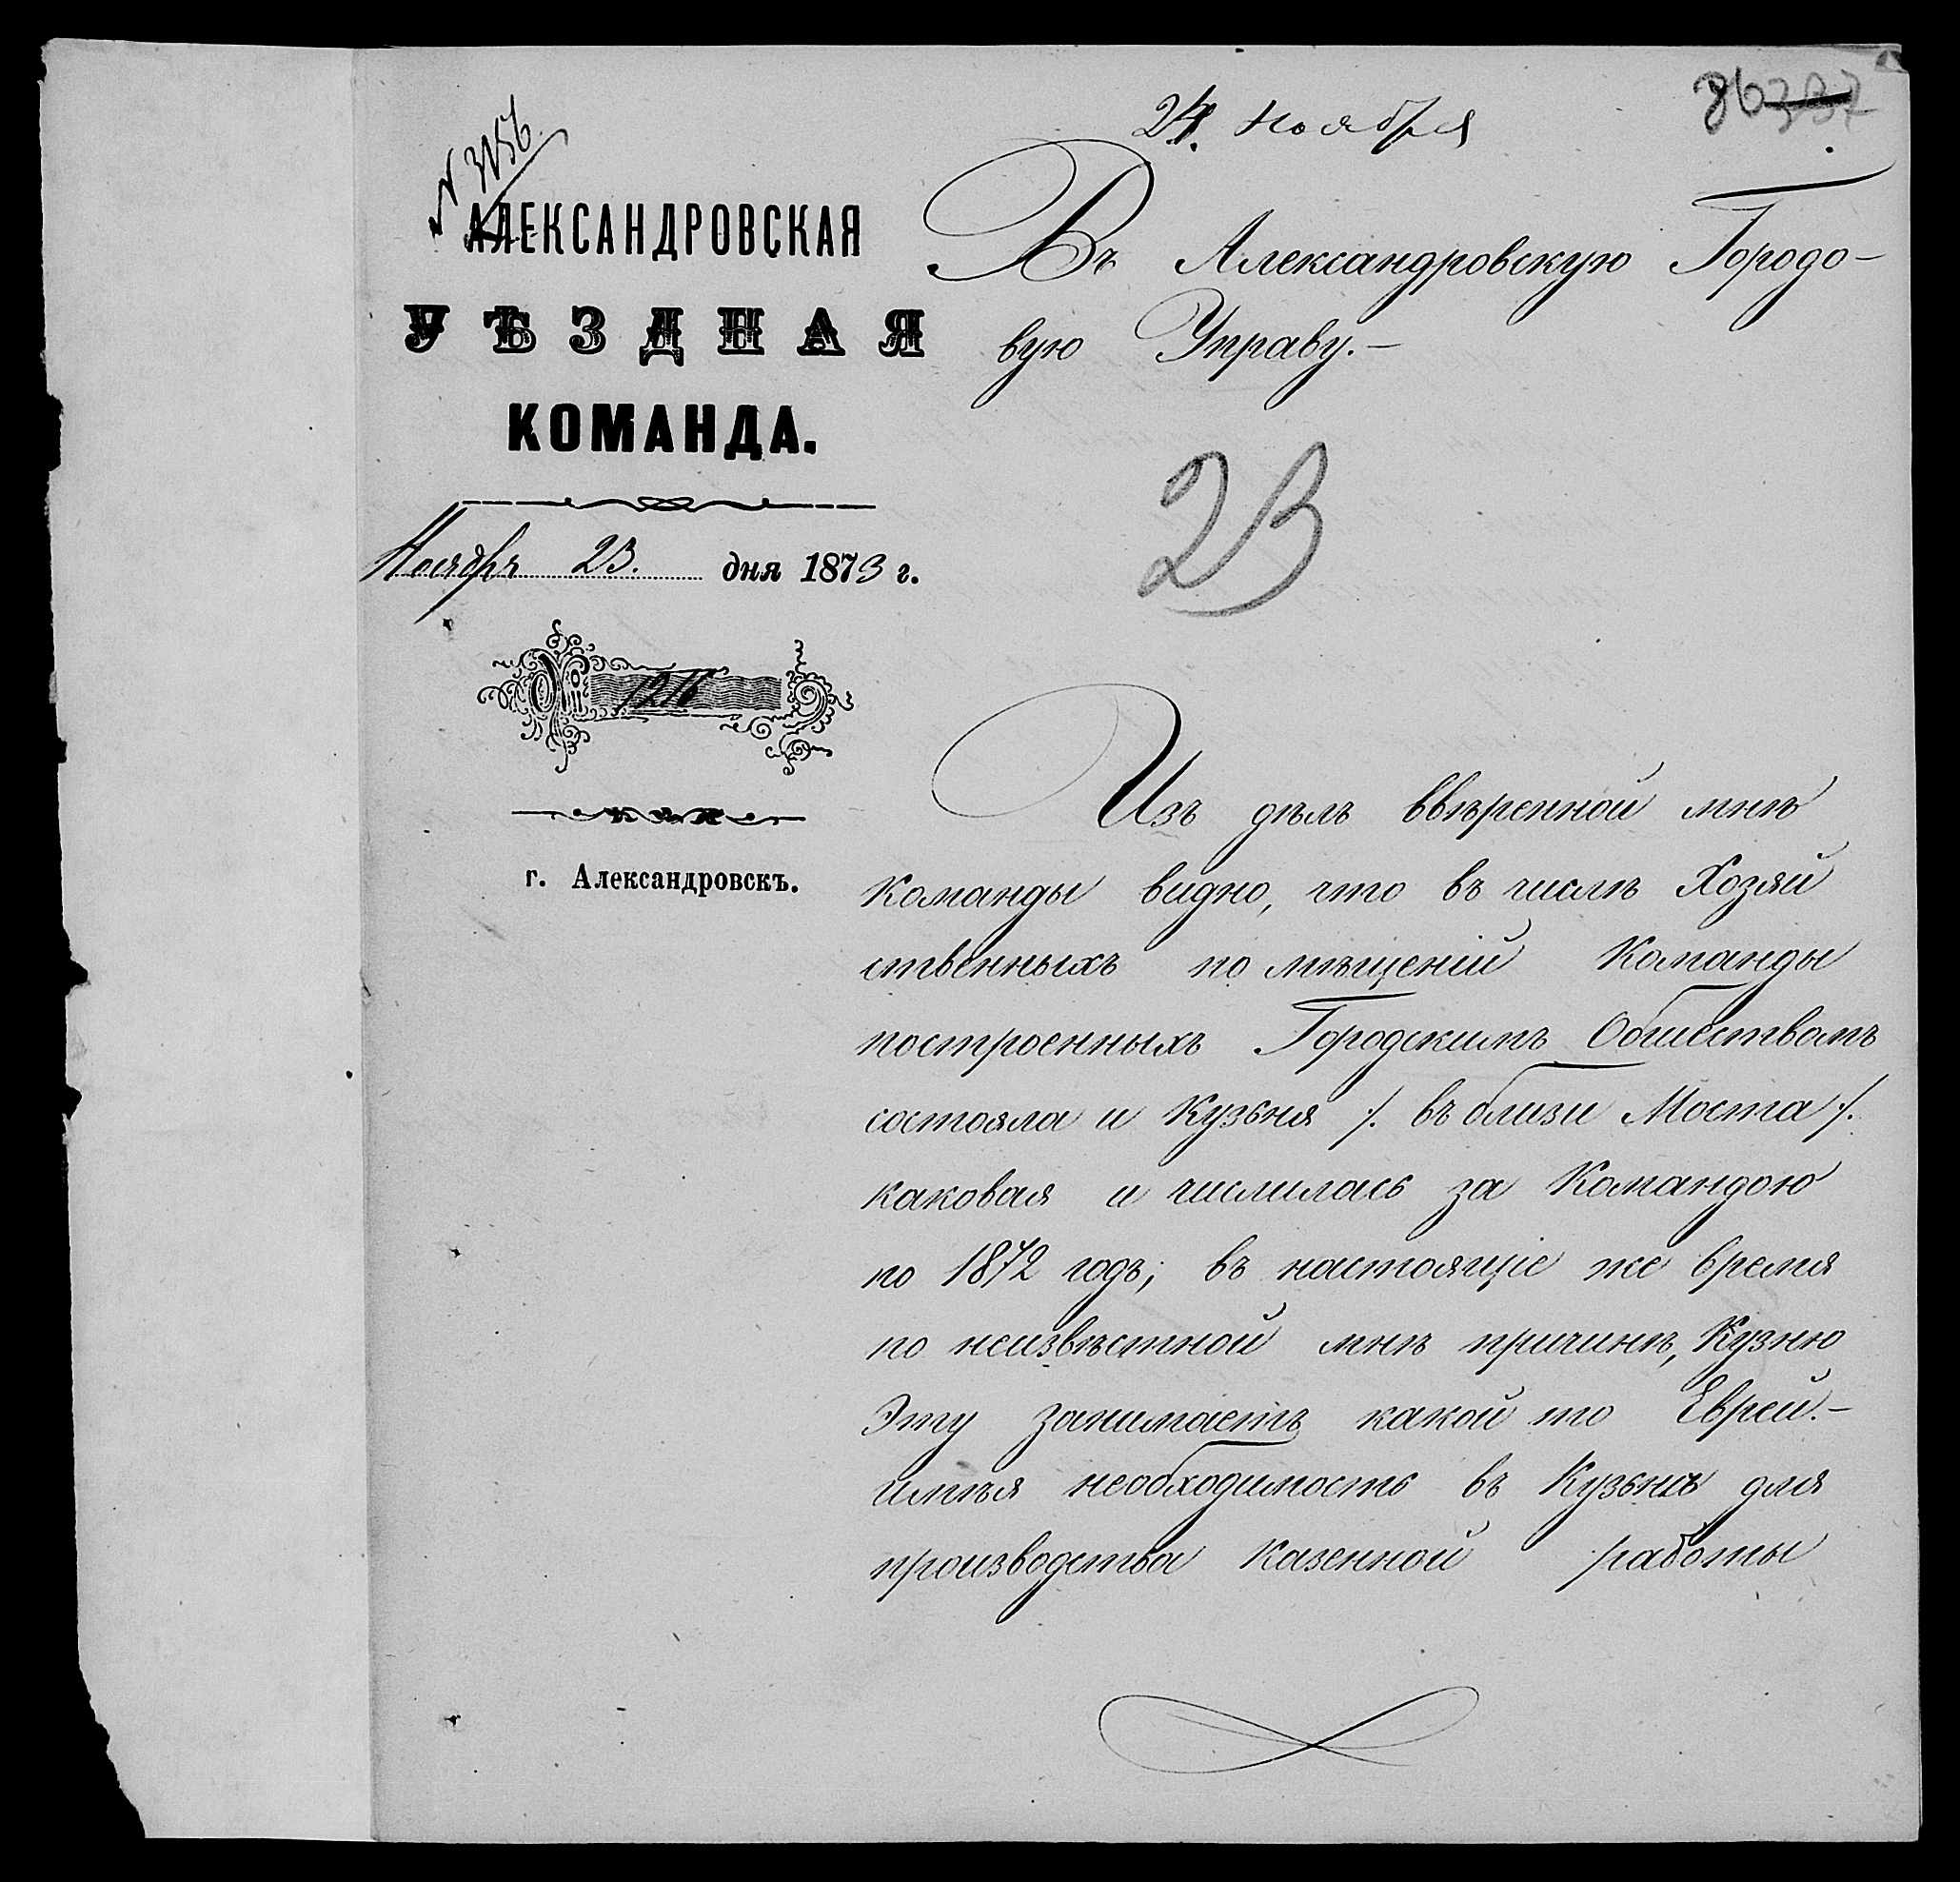 24. Ноября
86 337
№ 3156.
АЛЕКСАНДРОВСКАЯ
УѢЗДНАЯ
КОМАНДА.
Ноября 23. дня 1873 г.
№ 1216
г. Александровскъ.
Въ Александровскую Городо-
вую Управу.-
23
Изъ дѣлъ ввѣренной мнѣ
Команды видно, что въ числѣ Хозяй
ственныхъ помѣщеній Команды
построенныхъ Городскимъ Обществомъ
состояла и Кузьня /. въ близи Моста /.
каковая и числилась за Командою
по 1872 годъ; въ настоящіе же время
по неизвѣстной мнѣ причинѣ, Кузню
Эту занимаетъ какой то Еврей.-
имѣя необходимость въ Кузьнѣ для
производства казенной работы